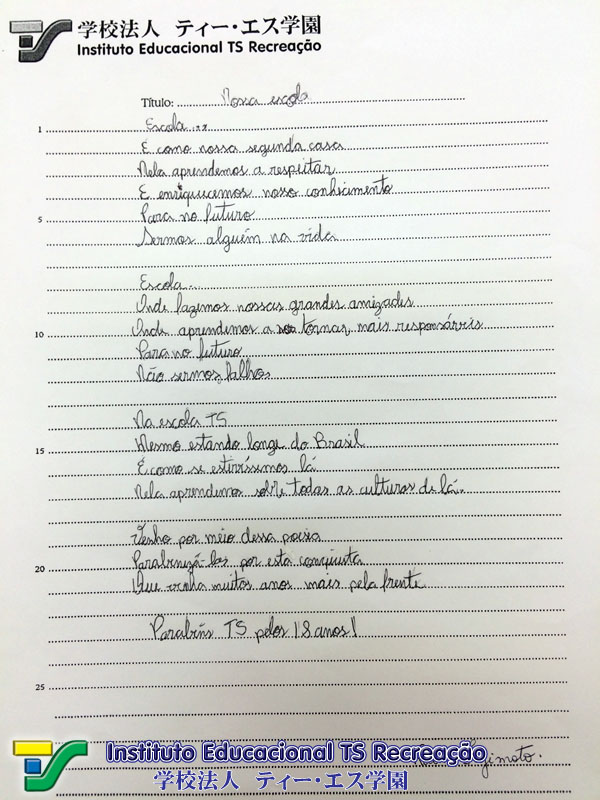 学校法人 ティー・エス学園
Instituto Educacional TS Recreação
Título: Nossa escola
1 Escola...
É como nossa segunda casa
Nela aprendemos a respeitar
E enriquecemos nosso conhecimento
5 Para no futuro
Sermos alguém na vida
Escola...
Onde fazemos nossas grandes amizades
10 Onde aprendemos a tornar mais responsáveis
Para no futuro
Não sermos falhos
Na escola TS
15 Mesmo estando longe do Brasil
É como se estivéssemos lá
Nela aprendemos sobre todas as culturas de lá.
Venho por meio dessa poesia
20 Parabenizá-los por esta conquista
Que venha muitos anos mais pela frente
Parabéns TS pelos 18 anos!
25
Instituto Educacional TS Recreação
学校法人 ティー・エス学園